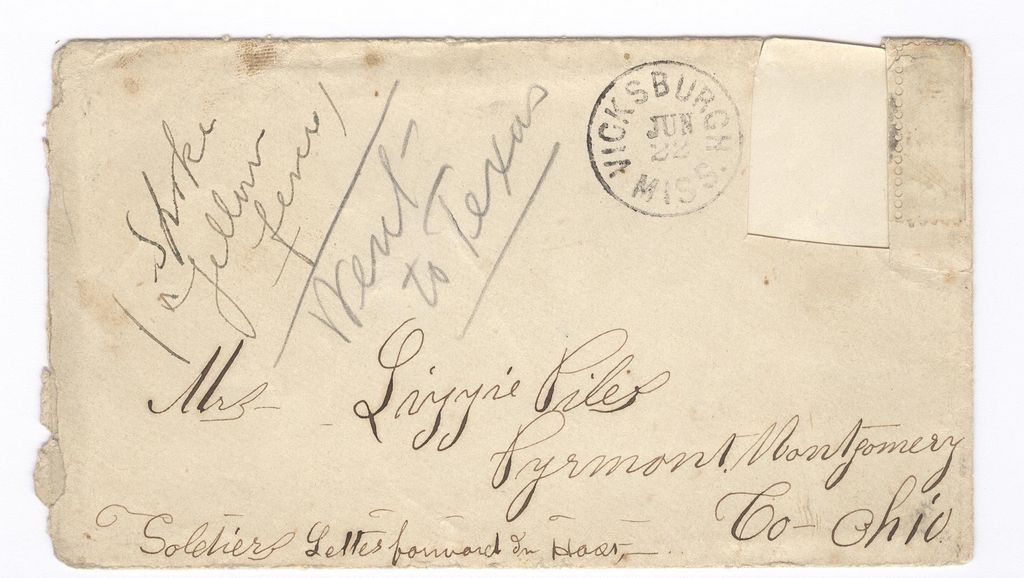 Spoke
of yellow
fever
Went
to Texas
VICKSBURGH
JUN
22
MISS.
Mrs- Lizzie Piles
Pyrmont Montgomery
Co- Ohio
Soldiers Letter forward in Haast